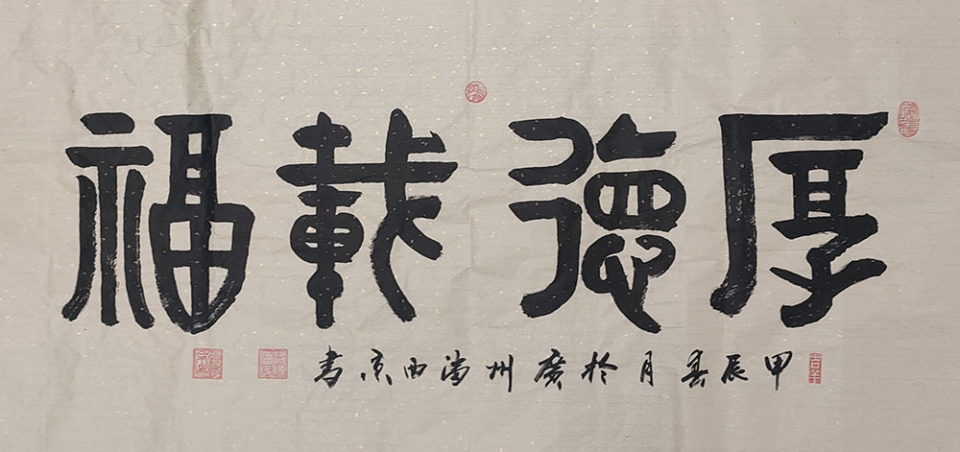 厚德載福
甲辰春月於廣州潘西京書